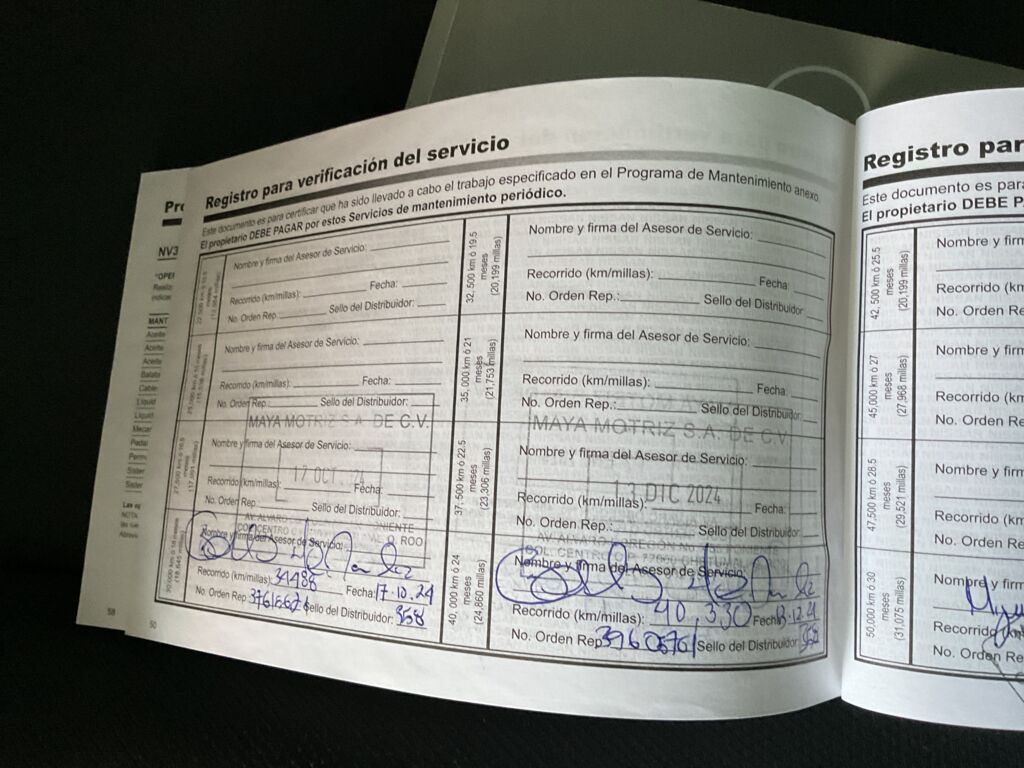 Registro para verificación del servicio
Este documento es para certificar que ha sido llevado a cabo el trabajo especificado en el Programa de Mantenimiento anexo.
El propietario DEBE PAGAR por estos Servicios de mantenimiento periódico.
Nombre y firma del Asesor de Servicio:
Recorrido (km/millas): Fecha:
No. Orden Rep.: Sello del Distribuidor:
Nombre y firma del Asesor de Servicio:
Recorrido (km/millas): Fecha:
No. Orden Rep.: Sello del Distribuidor:
MAYA MOTRIZ S.A. DE C.V.
Nombre y firma del Asesor de Servicio:
17 OCT. 24
Recorrido (km/millas): Fecha:
No. Orden Rep. Sello del Distribuidor:
Nombre y firma del Asesor de Servicio:
Recorrido (km/millas): 31488 Fecha: 17.10.24
No. Orden Rep. Sello del Distribuidor: 358
32, 500 km ó 19.5
meses
(20,199 millas)
Nombre y firma del Asesor de Servicio:
Recorrido (km/millas): Fecha:
No. Orden Rep.: Sello del Distribuidor:
35, 000 km ó 21
meses
(21,753 millas)
Nombre y firma del Asesor de Servicio:
Recorrido (km/millas): Fecha:
No. Orden Rep.: Sello del Distribuidor:
MAYA MOTRIZ S.A. DE C.V.
37, 500 km ó 22.5
meses
(23,306 millas)
Nombre y firma del Asesor de Servicio:
DIC 2024
Recorrido (km/millas): Fecha:
No. Orden Rep.: Sello del Distribuidor:
40, 000 km ó 24
meses
(24,860 millas)
Nombre y firma del Asesor de Servicio
Recorrido (km/millas): 40,330 Fecha
No. Orden Rep Sello del Distribuidor
50
58
Pro
NV3
MANT
Aceite
Aceite
Aceite
Registro par
Este documento es para
El propietario DEBE PA
42, 500 km ó 25.5
meses
(20,199 millas)
Nombre y firm
Recorrido (km
No. Orden Re
45,000 km ó 27
meses
(27,968 millas)
Nombre y firm
Recorrido (km
No. Orden Re
47,500 km ó 28.5
meses
(29,521 millas)
Nombre y firm
Recorrido (km
No. Orden Re
50,000 km ó 30
meses
(31,075 millas)
Nombre y firm
Recorrido
No. Orden Re